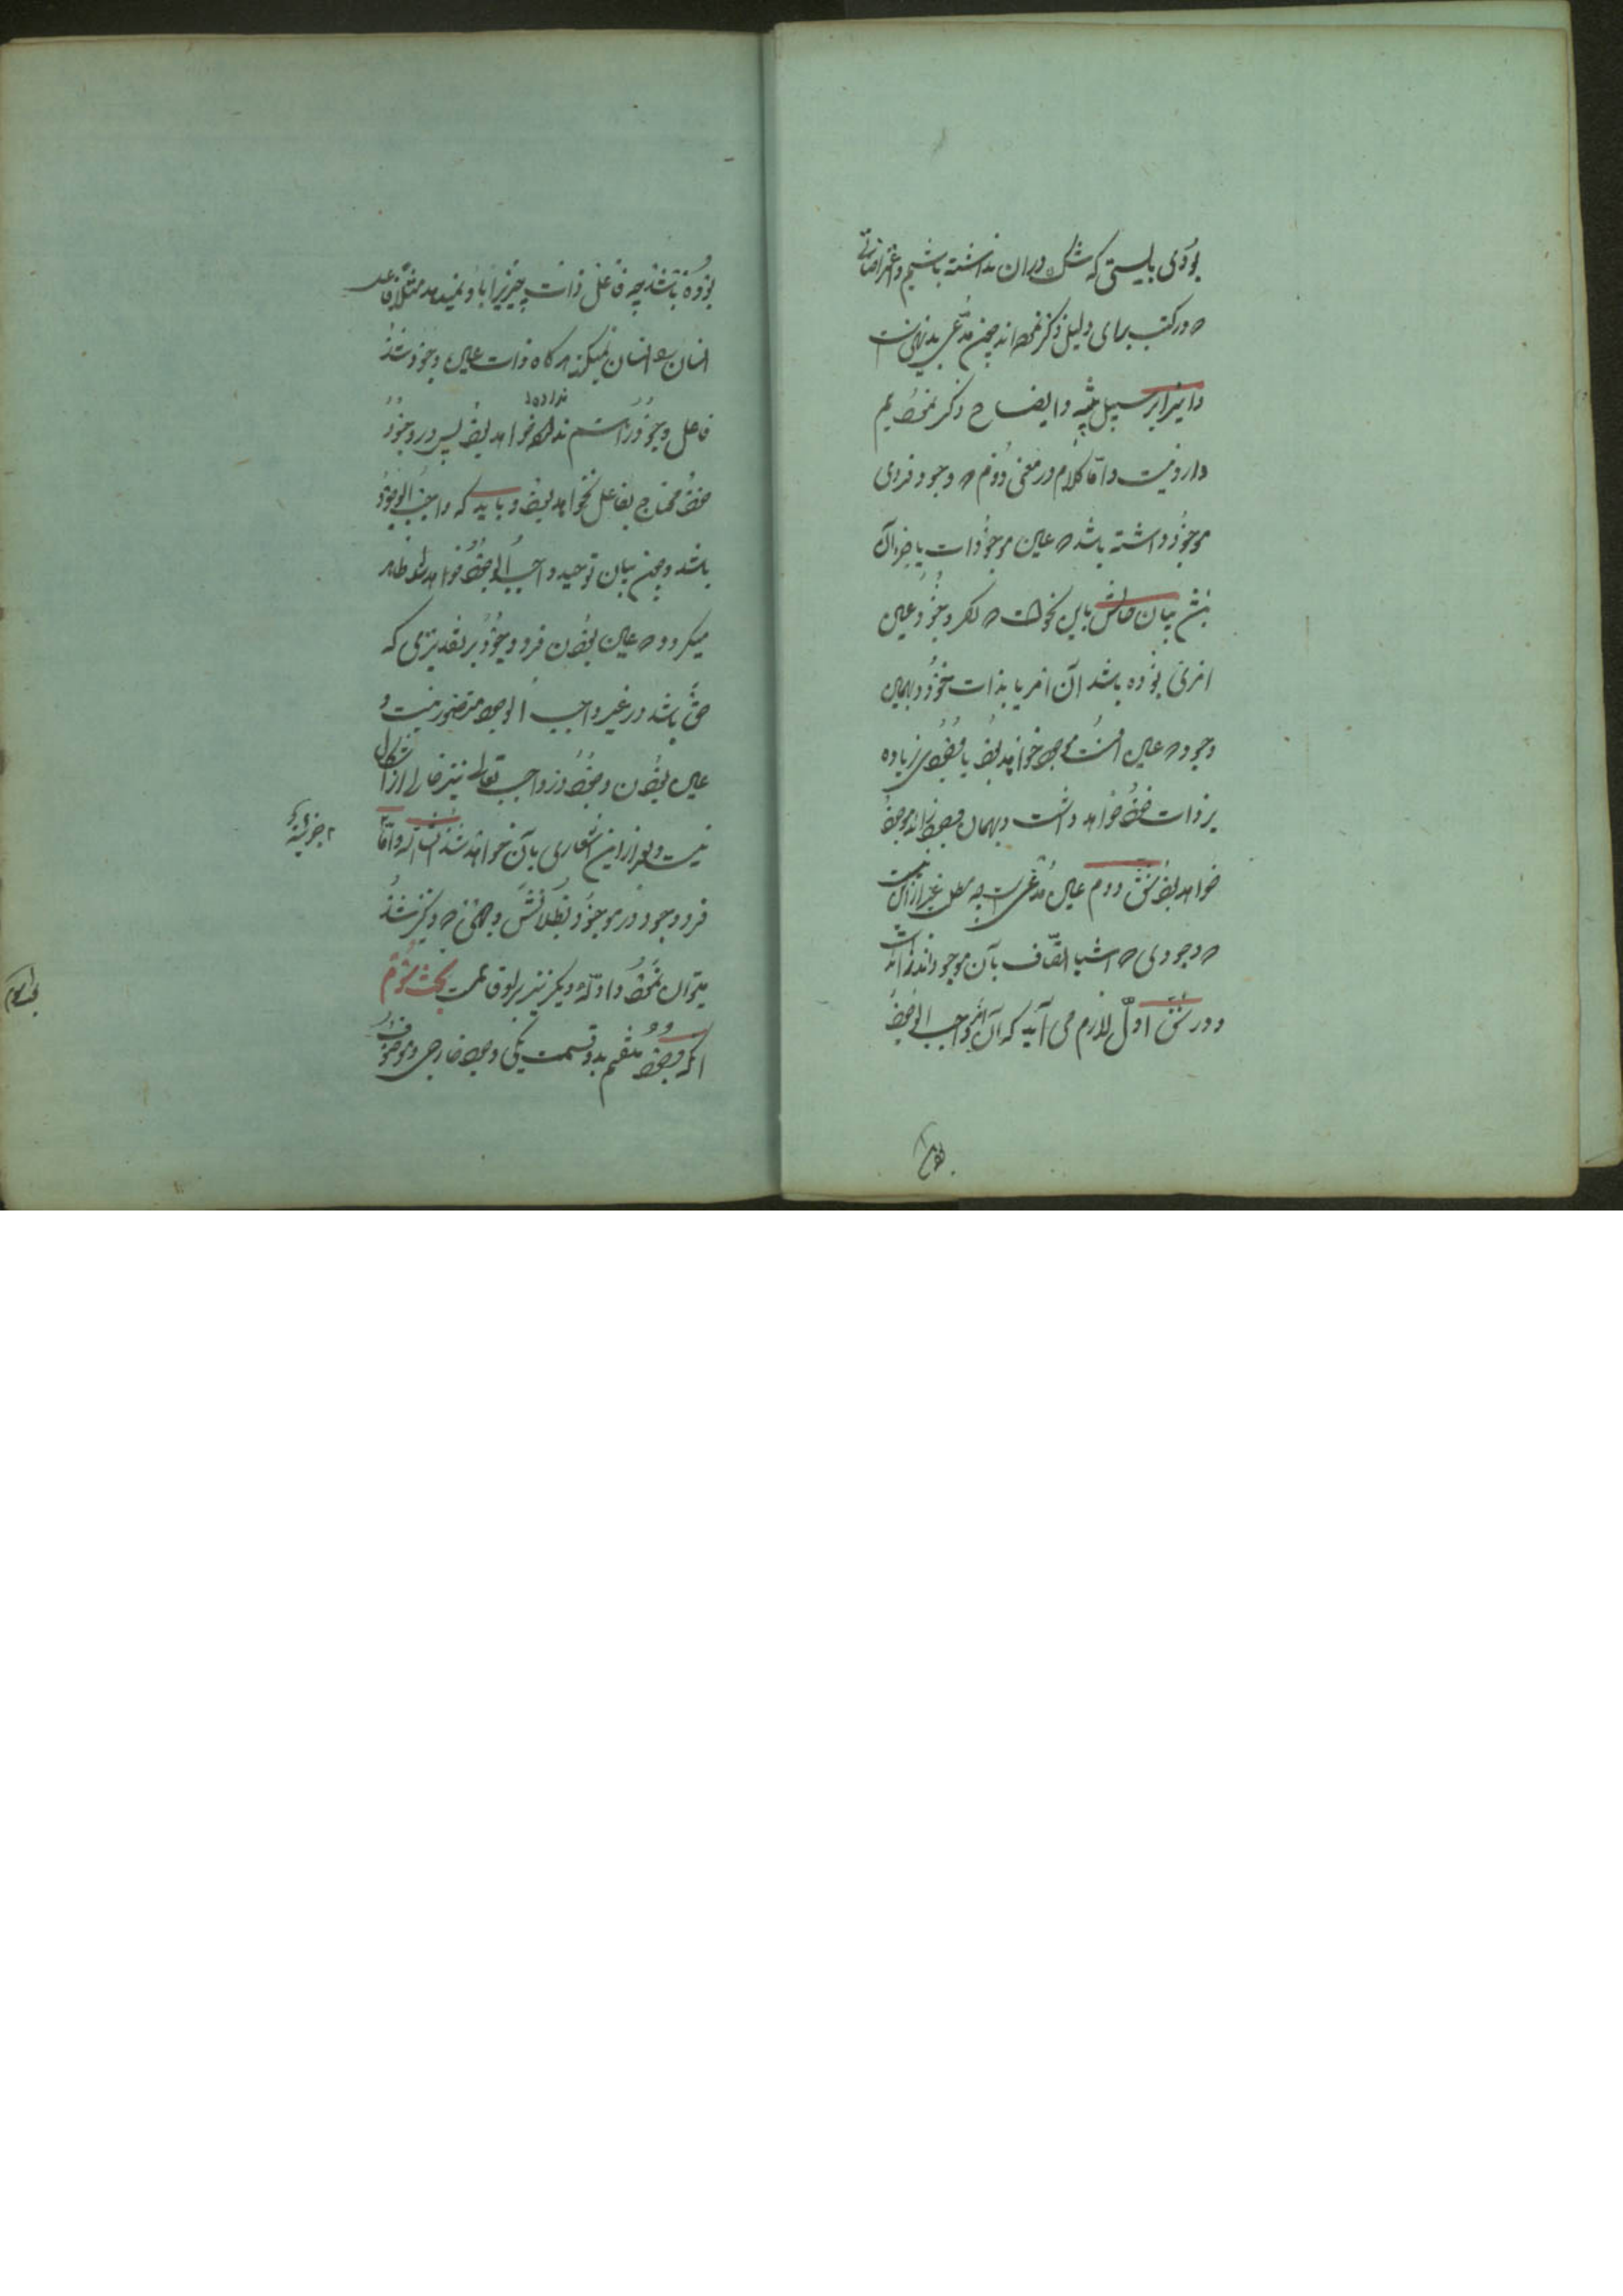 بودی بایستی که شک در آن نداشته باشیم و اعتراضاتی
که در کتب برای دلیل ذکر نموده‌اند چون مدعی بدیهی است
و اینرا بر سبیل تنبیه و ایضاح ذکر نموده‌ایم
وارد نیست و اما کلام در معنی دوم که وجود فردی
موجود داشته باشد که عین موجودات یا جزء آن
باشد بیان حالش باین نحو است که اگر وجود عین
امری بوده باشد آن امر یا بذات خود و بهمین
وجود که عین اوست موجود خواهد بود یا وجودی زیاده
بر ذات خود خواهد داشت و بهمان وجود زاید موجود
خواهد بود شق دوم عین مدعی است چه مطلب غیر از این نیست
که وجودی که اشیا باتصاف بآن موجودند زاید است
و در شق اول لازم می آید که آن امر واجب الوجود
بوده باشد چه فاعل ذات چیزیرا باو نمیدهد مثلا فاعل
انسانرا انسان نمیکند هرگاه ذات عین وجود شد
فاعل وجود را هم نداده خواهد بود پس در وجود
خود محتاج بفاعل نخواهد بود و باید که واجب الوجود
باشد و چون بیان توحید واجب الوجود خواهد شد ظاهر
میگردد که عین بودن فرد وجود بر تقدیری که
حق باشد در غیر واجب الوجود متصور نیست و
عین بودن وجود در واجب تعالی نیز خالی از اشکال
نیست و بعد از این اشعاری بآن خواهد شد انشاالله و اما
جزئیت
فرد وجود در موجود بطلانش بوجهی که ذکر شد
میتوان نمود و ادله دیگر نیز بر او قایمست بحث سوم
بحث سوم
آنکه وجود منقسم بدو قسمت یکی وجود خارجی و موجود